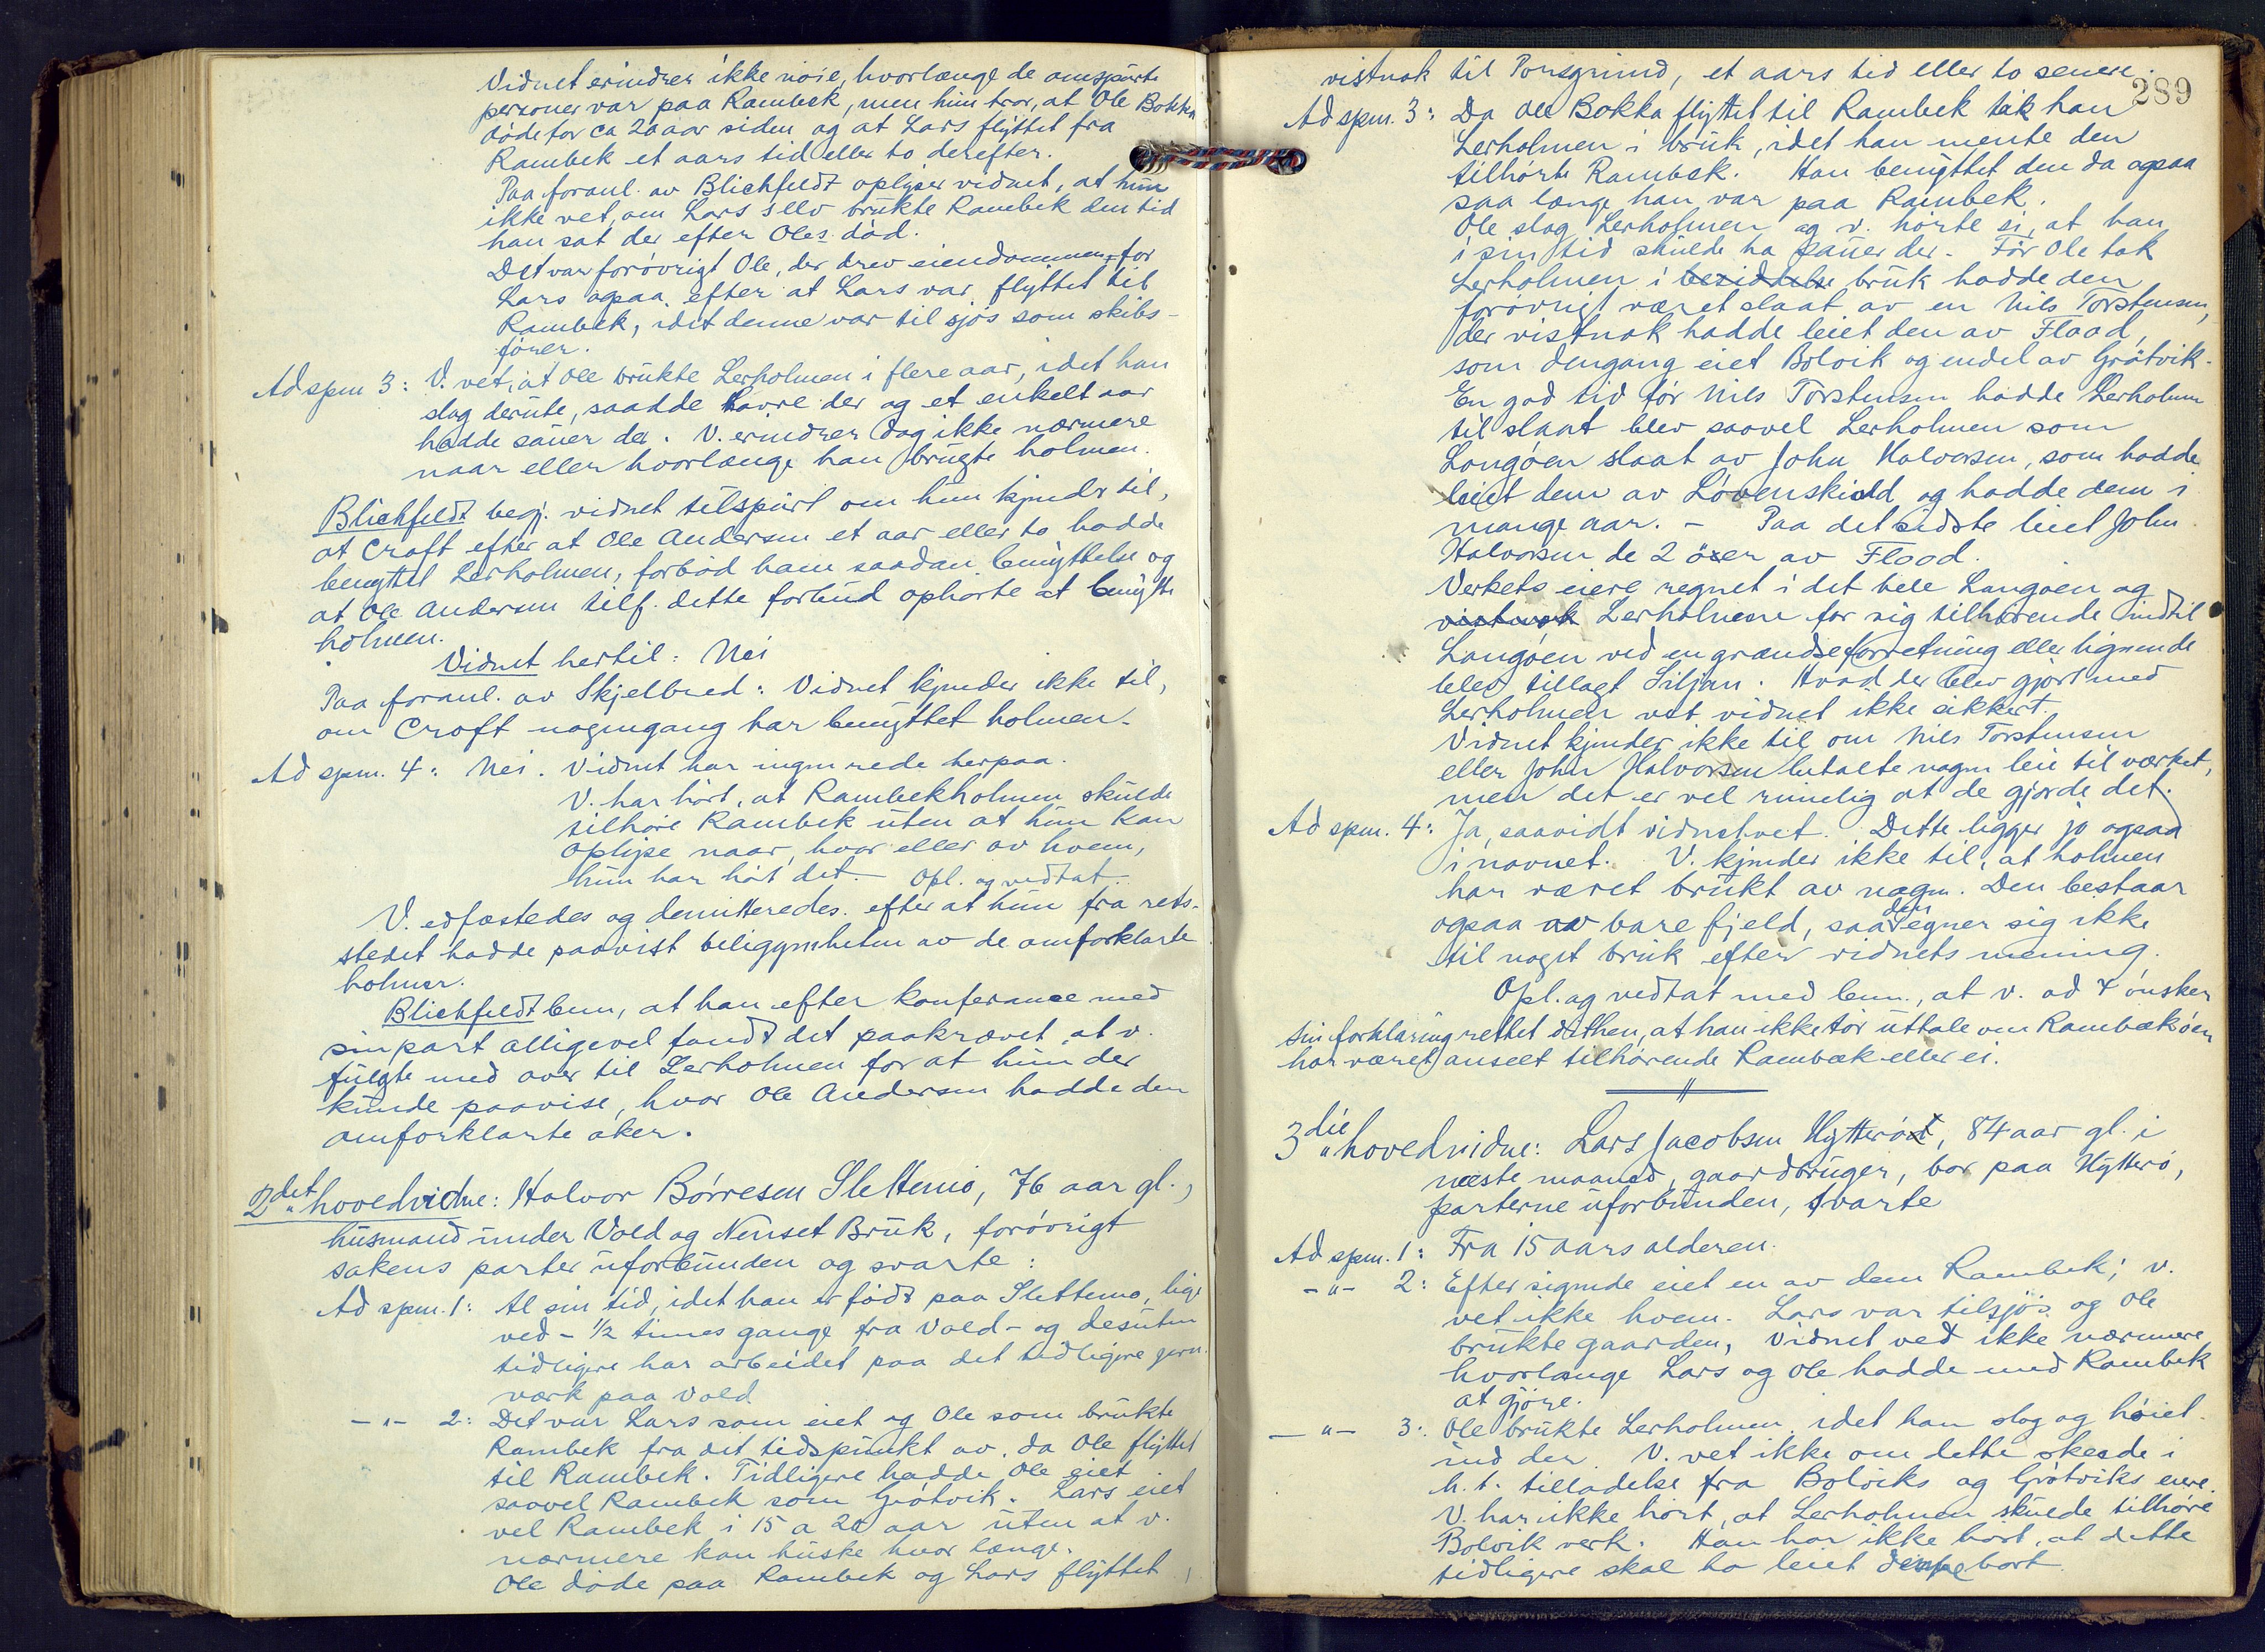 Vidnet erindrer ikke nøie, hvorlænge de omspurte
personer var paa Rambek, men hun tror, at Ole Bokka
døde for ca 20 aar siden og at Lars flyttet fra
Rambek et aars tid eller to derefter.
Paa foranl. av Blichfeldt oplyser vidnet, at hun
ikke vet, om Lars selv brukte Rambek den tid
han sat der efter Oles død.
Det var forøvrigt Ole, der drev eiendommen for
Lars ogsaa efter at Lars var flyttet til
Rambek, idet denne var til sjøs som skibs-
fører.
Ad spm 3: V. vet, at Ole brukte Lerholmen i flere aar, idet han
slog derute, saadde havre der og et enkelt aar
hadde sauer der. V. erindrer dog ikke nærmere
naar eller hvorlænge han brugte holmen.
Blichfeldt begj. vidnet tilspurt om hun kjender til,
at Croft efter at Ole Andersen et aar eller to hadde
benyttet Lerholmen, forbød ham saadan benyttelse og
at Ole Andersen tilf. dette forbud ophørte at benytte
holmen.
Vidnet hertil: Nei
Paa foranl. av Skjelbred: Vidnet kjender ikke til,
om Croft nogengang har benyttet holmen.
Ad spm. 4: Nei. Vidnet har ingen rede herpaa.
V. har hørt, at Rambekholmen skulde
tilhøre Rambek uten at hun kan
oplyse naar, hvor eller av hvem,
hun har hørt det. Opl. og vedtat.
V. edfæstedes og demitteredes. efter at hun fra rets-
stedet hadde paavist beliggenheten av de omforklarte
holmer.
Blichfeldt bem, at han efter konferance med
sin part alligevel fandt det paakrævet at v.
fulgte med over til Lerholmen for at hun der
kunde paavise, hvor Ole Andersen hadde den
omforklarte aker.
2det hovedvidne: Halvor Børresen Slettemo, 76 aar gl.,
husmand under Vold og Nenset Bruk, forøvrigt
sakens parter uforbunden og svarte:
Ad spm. 1: Al sin tid, idet han er født paa Slettemo, lige
ved - 1/2 times gange fra Vold - og desuten
tidligere har arbeidet paa det tidligere jern-
værk paa Vold
-"- 2: Det var Lars som eiet og Ole som brukte
Rambek fra det tidspunkt av, da Ole flyttet
til Rambek. Tidligere hadde Ole eiet
saavel Rambek som Grøtvik. Lars eiet
vel Rambek i 15 a 20 aar uten at v.
nærmere kan huske hvor længe.
Ole døde paa Rambek og Lars flyttet,
289
vistnok til Porsgrund, et aars tid eller to senere.
Ad spm. 3: Da Ole Bokka flyttet til Rambek tok han
Lerholmen i bruk, idet han mente den
tilhørte Rambek. Han benyttet den da ogsaa
saa længe han var paa Rambek.
Ole slog Lerholmen og v. hørte si, at han
i sin tid skulde ha sauer der. Før Ole tok
Lerholmen i besiddelse bruk hadde den
forøvrigt været slaat av en Nils Torstensen,
der vistnok hadde leiet den av Flood,
som dengang eiet Bolvik og endel av Grøtvik.
En god tid før Nils Torstensen hadde Lerholmen
til slaat blev saavel Lerholmen som
Langøen slaat av John Halvorsen, som hadde
leiet dem av Løvenskiold og hadde dem i
mange aar. - Paa det sidste leiet John
Halvorsen de 2 øer av Flood.
Verkets eiere regnet i det hele Langøen og
vistnok Lerholmene for sig tilhørende indtil
Langøen ved en grændseforretning eller lignende
blev tillagt Siljan. Hvad der blev gjort med
Lerholmen vet vidnet ikke sikkert.
Vidnet kjender ikke til om Nils Torstensen
eller John Halvorsen betalte nogen leie til værket,
men det er vel rimelig at de gjorde det.
Ad spm. 4: Ja, saavidt vidnet vet. Dette ligger jo ogsaa
i navnet. V. kjender ikke til, at holmen
har været brukt av nogen. Den bestaar
ogsaa av bare fjeld, saa den egner sig ikke
til noget bruk efter vidnets mening.
Opl. og vedtat med bem., at v. ad 4 ønsker
sin forklaring rettet dithen, at han ikke tør uttale om Rambækøen
har været anseet tilhørende Rambæk eller ei.
3die hovedvidne: Lars Jacobsen Hytterø, 84 aar gl. i
næste maaned, gaardbruger, bor paa Hytterø,
parterne uforbunden, svarte
Ad spm. 1: Fra 15 aars alderen.
-"- 2: Efter sigende eiet en av dem Rambek; v.
vet ikke hvem. Lars var tilsjøs og Ole
brukte gaarden, Vidnet ved ikke nærmere
hvorlænge Lars og Ole hadde med Rambek
at gjøre.
-"- 3: Ole brukte Lerholmen, idet han slog og høiet
ind der. V. vet ikke om dette skeede i
h. t. tilladelse fra Bolviks og Grøtviks eiere.
V. har ikke hørt, at Lerholmen skulde tilhøre
Bolvik verk. Han har ikke hørt, at dette
tidligere skal ha leiet denne bort